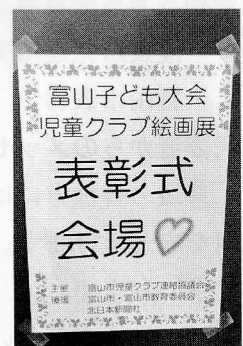 富山子ども大会
児童クラブ絵画展
表彰式
会場♡
主催 富山市児童クラブ連絡協議会
後援 富山市・富山市教育委員会
北日本新聞社